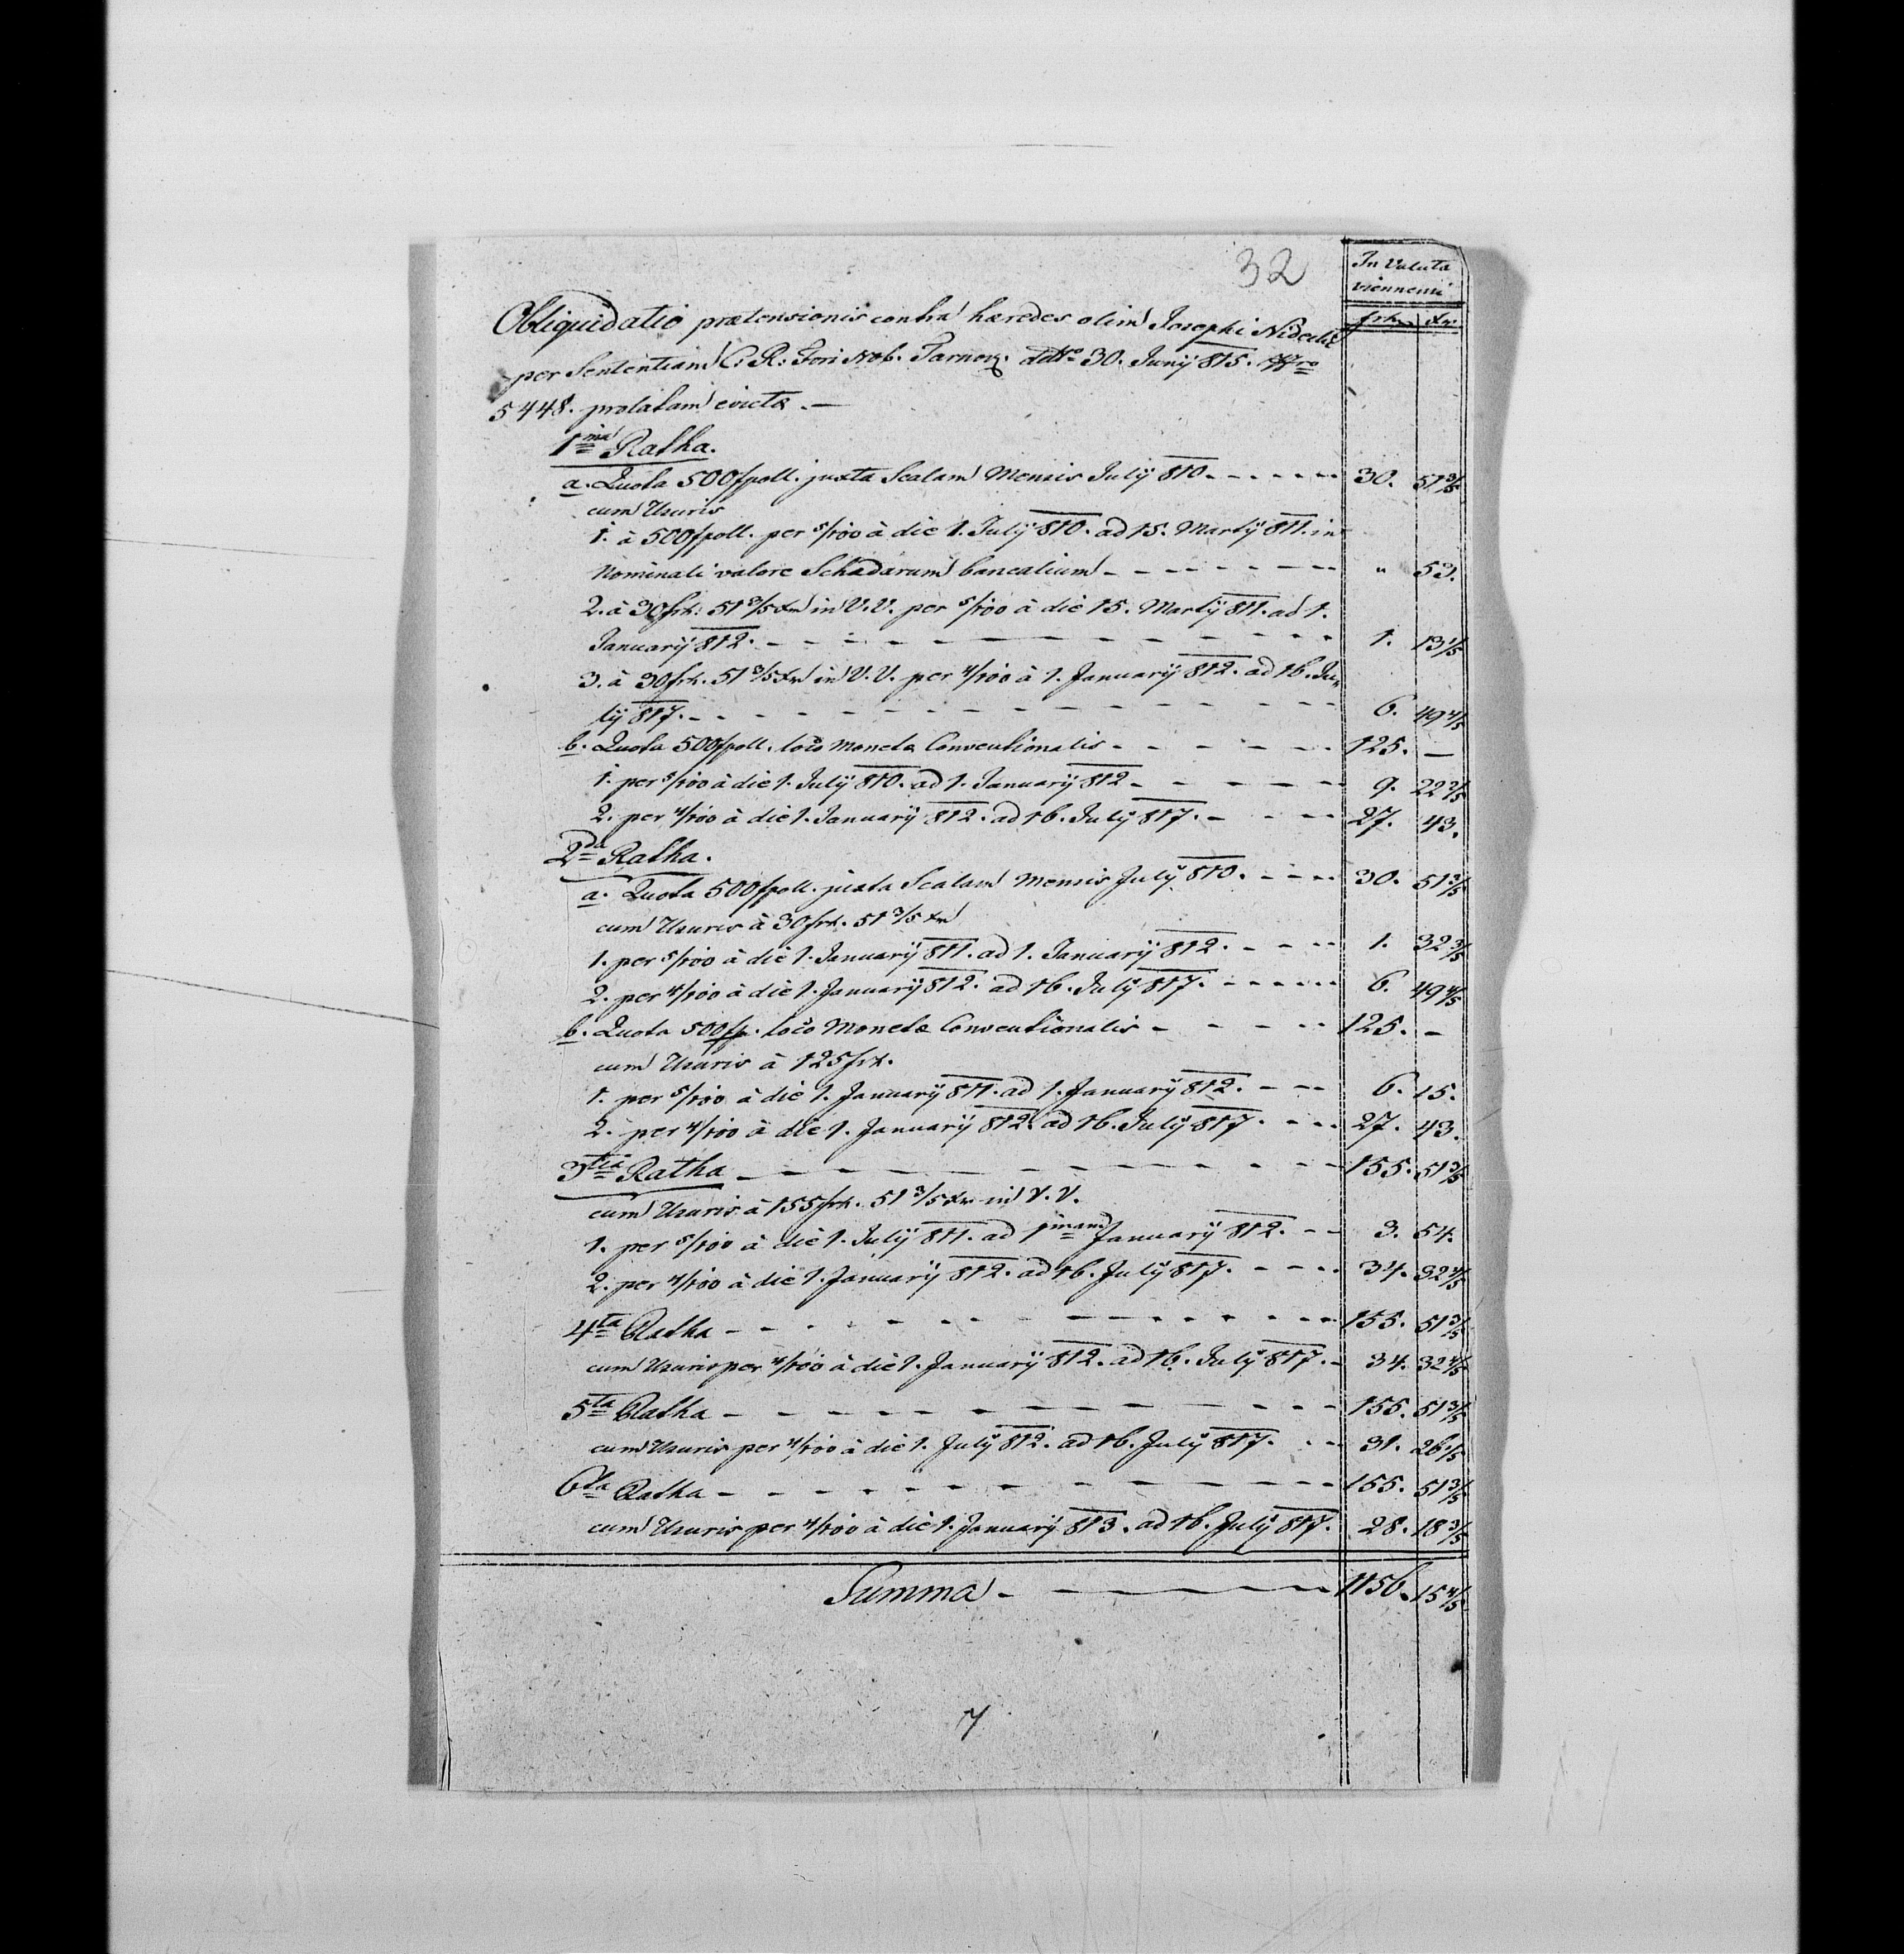 32
In Valuta
viennensi
frh. xr.
Obliquidatio prætensionis contra hæredes olim Josephi
per Sententiam C: R: Fori Nob. Tarnov. ddto 30. Junÿ 815. Nro
5448. prolatam evictæ. —
1ma Ratha.
a. Quota 500fpoll. juxta Scalam Mensis Julÿ 810. - - - - - - 30. 51 3/5
cum Usuris
1. à 500fpoll. per 5/100 à die 1. Julÿ 810. ad 15. Martÿ 811. in
Nominali valore Schædarum bancalium - - - - - - - - " 53.
2. à 30frh: 51 3/5 xr in V.V. per 5/100 à die 15. Martÿ 811. ad 1.
Januarÿ 812. - - - - - - - - - - - - 1. 13 1/5
3. à 30frh. 51 3/5 xr in V.V. per 4/100 à 1. Januarÿ 812. ad 16. Ju-
lÿ 817. - - - - - - - - - - - - - - 6. 49 4/5
b. Quota 500fpoll. loco Monetæ Conventionalis - - - - - - 125. —
1. per 5/100 à die 1. Julÿ 810. ad 1. Januarÿ 812 - - - - - - 9. 22 2/5
2. per 4/100 à die 1. Januarÿ 812. ad 16. Julÿ 817. - - - - 27. 43.
2da Ratha.
a. Quota 500fpoll. juxta Scalam Mensis Julÿ 810. - - - - 30. 51 3/5
cum Usuris à 30frh. 51 3/5 xr
1. per 5/100 à die 1. Januarÿ 811. ad 1. Januarÿ 812. - - - - 1. 32 3/5
2. per 4/100 à die 1. Januarÿ 812. ad 16. Julÿ 817. - - - - - - 6. 49 4/5
b. Quota 500fp. loco Monetæ Conventionalis - - - - - 125. —
cum Usuris à 125frh.
1. per 5/100 à die 1. Januarÿ 811. ad 1. Januarÿ 812. - - - 6. 15.
2. per 4/100 à die 1. Januarÿ 812. ad 16. Julÿ 817. - - - 27. 43.
3tia Ratha - - - - - - - - - - - - 155. 51 3/5
cum Usuris à 155frh. 51 3/5 xr in V.V.
1. per 5/100 à die 1. Julÿ 811. ad 1mam Januarÿ 812. - - 3. 54.
2. per 4/100 à die 1. Januarÿ 812. ad 16. Julÿ 817. - - - - 34. 32 4/5
4ta Ratha - - - - - - - - - - - - 155. 51 3/5
cum Usuris per 4/100 à die 1. Januarÿ 812. ad 16. Julÿ 817. - 34. 32 4/5
5ta Ratha - - - - - - - - - - - - 155. 51 3/5
cum Usuris per 4/100 à die 1. Julÿ 812. ad 16. Julÿ 817. - - - 31. 26 1/5
6ta Ratha - - - - - - - - - - - - 155. 51 3/5
cum Usuris per 4/100 à die 1. Januarÿ 813. ad 16. Julÿ 817. 28. 18 3/5
Summa - — — — — 1156. 15 4/5